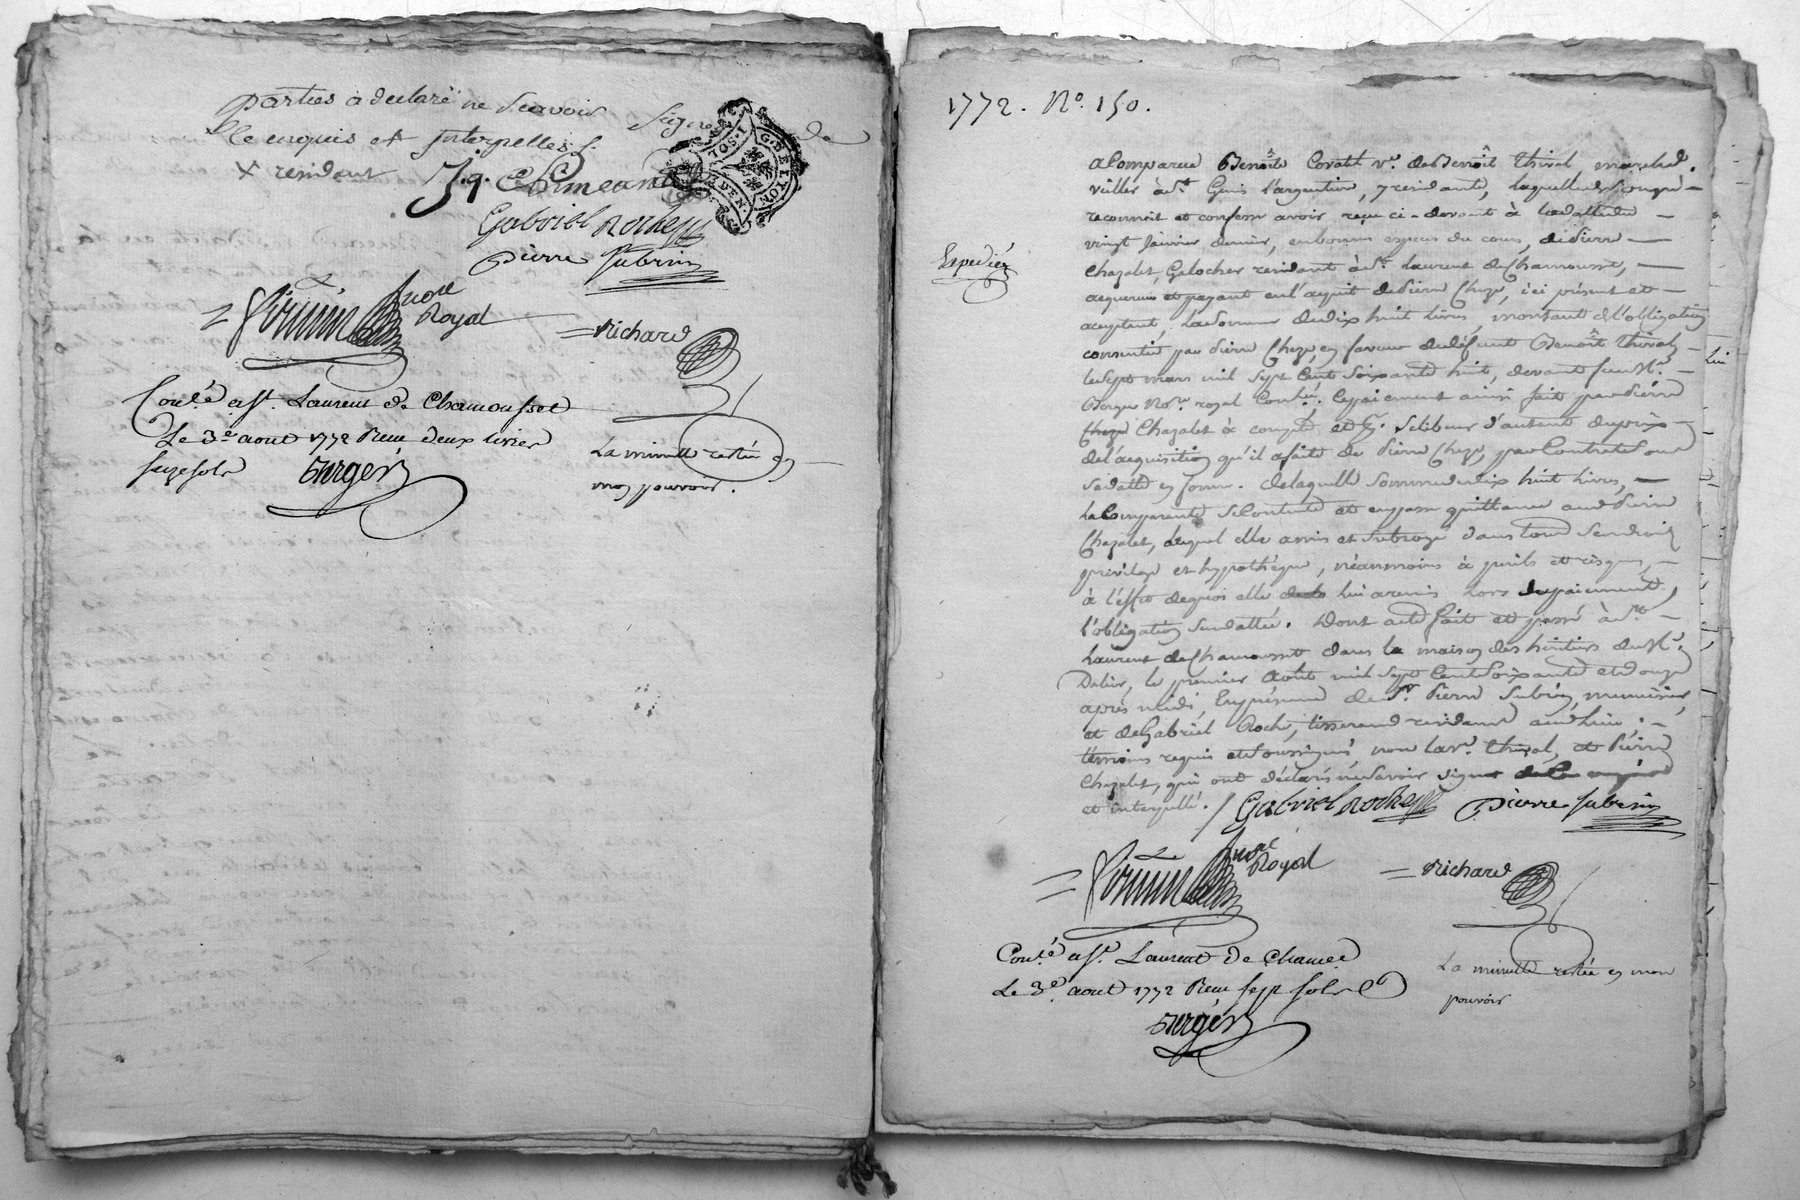 parties a declaré ne scavoir signer de
ce enquis et interpellés ./.
+ résident J.q. Chimeand
G. DE LYON
Gabriel Roche
pierre subrin
nore
Royal
= Richard
Con.lé a St. Laurent de Chamousset
Le 3e. aout 1772 Reçu deux livres
seize sols
La minutte restée en
mon pouvoir.
1772. No. 150.
Expediée
a Comparue Benoîte ve. de Benoît thival marchd.
à St. Genis l'argentiere, y residante, laquelle de son gré
reconnoit et confesse avoir reçu ci-devant à la datte du
vingt Janvier dernier, en bonnes especes du cours, de pierre
Chazalet, Galocher residant à St. Laurent de Chamousset,
acquereur et payant en l'acquit de pierre Cheze, ici présent et
acceptant, la somme de dix huit livres, montant de l'obligation
consentie par pierre Cheze en faveur dudéfunt Benoît thival,
le sept mars mil sept Cent soixante huit, devant feu Me.
Nore. royal Con.lé. Ce paiement ainsi fait par pierre
Chazalet à compte et se liberer d'autant du prix
de l'acquisition qu'il a faite de pierre Cheze, par Contrat sous
sa datte en forme. de laquelle somme de dix huit livres,
la Comparante se Contente et en passe quittance audit pierre
Chazalet, lequel elle a mis et subrogé dans tous ses droits
privilege et hypothéque, néanmoins à perils et risques,
à l'effet de quoi elle lui a remis hors du paiement,
l'obligation susdattée. Dont acte fait et passé à St.
Laurent de Chamousset dans la maison des héritiers du Sr.
le premier Août mil sept Cent soixante et douze
après midi, En présence de Sr. Pierre Subrin, menuisier,
et de Gabriel Roche, tisserand residants audit lieu,
témoins requis et soussignés, non la ve. thival, et pierre
Chazalet, qui ont déclarés ne savoir signer de ce enquis
et interpellé. / Gabriel Roche pierre subrin
nore
Royal
= Richard
Con.lé a St. Laurent de Chamet
Le 3e. aout 1772 Reçu sept sols
La minutte restée en mon
pouvoir